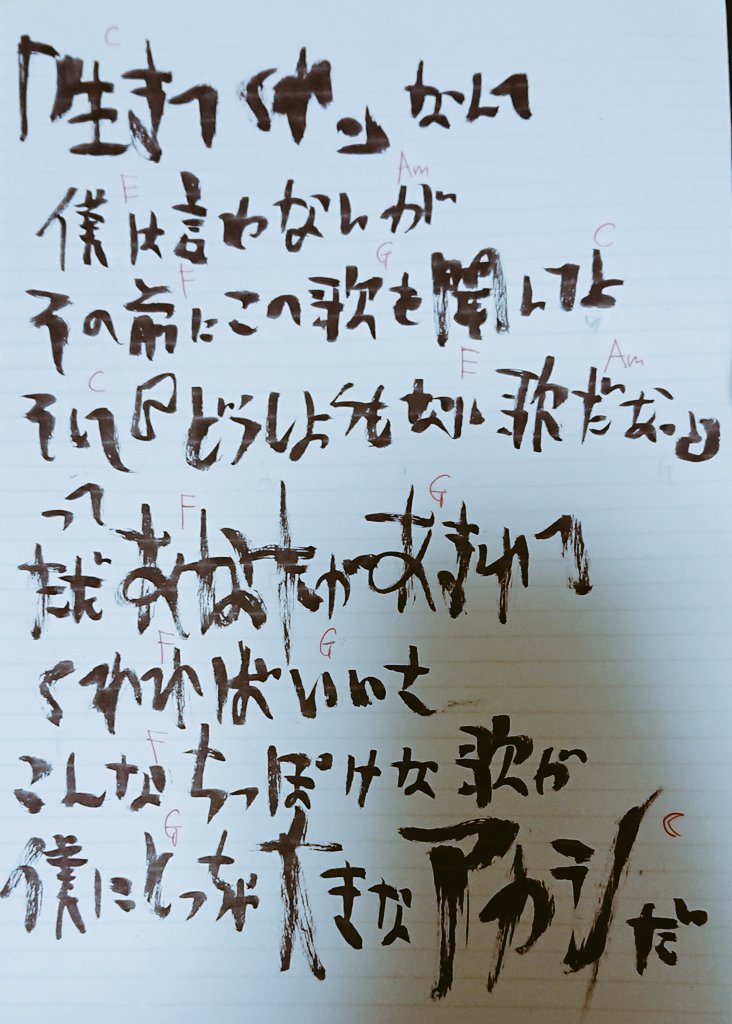 C
「生きてくや。」なんて
E Am
僕は言わないが
F G C
その前にこの歌も聞いてよ
C E Am
そして『どうしようもない歌だな。』
って
F G
ただあなたがあきれて
F G
くれればいいさ
F
こんなちっぽけな歌が
G C
僕にとっちゃ大きなアカシだ